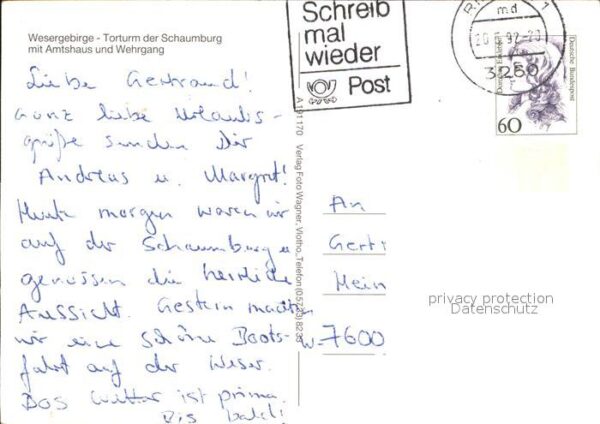 Wesergebirge - Torturm der Schaumburg
mit Amtshaus und Wehrgang
Liebe Gertraud!
Ganz liebe Urlaubs-
grüße senden Dir
Andreas u. Margret!
Heute morgen waren wir
auf der Schaumburg u
genossen die herrliche
Aussicht. Gestern machten
wir eine schöne Boots-
fahrt auf der Weser.
Das Wetter ist prima.
Bis bald!
Schreib
mal
wieder
Post
md
92-20
3260
Deutsche Bundespost
60
A 191 170 Verlag Foto Wagner, Vlotho, Telefon (05733) 8235
An
Gert
Hein
W-7600
privacy protection
Datenschutz